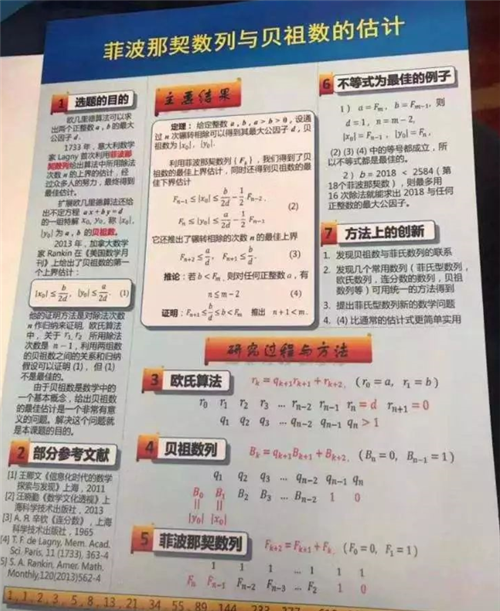 菲波那契数列与贝祖数的估计
1 选题的目的
欧几里德算法可以求
出两个正整数 a, b 的最大
公因子 d。
1733 年，意大利数学
家 Lagny 首次利用菲波那
契数列给出算法中所用除法
次数 n 的上界的估计，经
过众多人的努力，最终得到
最佳估计。
扩展欧几里德算法还给
出不定方程 ax + by = d
的一组特解 x₀, y₀，称 |x₀|,
|y₀| 为 a, b 的贝祖数。
2013 年，加拿大数学
家 Rankin 在《美国数学月
刊》上给出了贝祖数的第一
个上界估计：
|x₀| ≤ b/2d, |y₀| ≤ a/2d (1)
他的证明方法是对除法次数
n 作归纳来证明，欧氏算法
中，关于 r₁, r₂ 所用除法
次数是 n − 1，利用两组数
的贝祖数之间的关系和归纳
假设可以证明 (1)，但 (1)
不是最佳的。
由于贝祖数是数学中的
一个基本概念，给出贝祖数
的最佳估计是一个非常有意
义的问题。解决这个问题就
是本课题的目的。
2 部分参考文献
[1] 王卿文《信息化时代的数学
探索与发现》上海, 2011
[2] 汪晓勤《数学文化透视》上
海科学技术出版社, 2013
[3] A. Я. 辛钦《连分数》, 上海
科学技术出版社, 1965
[4] T. F. de Lagny, Mem. Acad.
Sci. Paris, 11 (1733), 363-4
[5] S. A. Rankin, Amer. Math.
Monthly, 120(2013)562-4
主要结果
定理：给定整数 a, b, a > b > 0，设通
过 n 次辗转相除可以得到其最大公因子 d，贝
祖数为 |x₀|, |y₀|。
利用菲波那契数列 {Fₖ}，我们得到了贝
祖数的最佳上界估计，同时还得到贝祖数的最
佳下界估计
Fₙ₋₁ ≤ |x₀| ≤ b/2d − 1/2 Fₙ₋₂,
(2)
Fₙ ≤ |y₀| ≤ a/2d − 1/2 Fₙ₋₁.
它还推出了辗转相除的次数 n 的最佳上界
Fₙ₊₂ ≤ a/d, Fₙ₊₁ ≤ b/d. (3)
推论：若 b < Fₘ，则对任何正整数 a，有
n ≤ m − 2 (4)
证明：Fₙ₊₁ ≤ b/d ≤ b < Fₘ 推出 n + 1 < m.
6 不等式为最佳的例子
1) a = Fₘ, b = Fₘ₋₁, 则
d = 1, n = m − 2,
|x₀| = Fₙ₋₁, |y₀| = Fₙ.
(2) (3) (4) 中的等号都成立，所
以不等式都是最佳的。
2) b = 2018 < 2584 (第
18个菲波那契数)，则最多用
16 次除法就能求出 2018 与任何
正整数的最大公因子。
7 方法上的创新
1. 发现贝祖数与菲氏数列的联系
2. 发现几个常用数列（菲氏型数列，
欧氏数列，连分数的数列，贝祖
数列等）可用统一的方法得到
3. 提出菲氏型数列新的数学问题
4. (4) 比通常的估计式更简单实用
研究过程与方法
3 欧氏算法 rₖ = qₖ₊₁rₖ₊₁ + rₖ₊₂, (r₀ = a, r₁ = b)
r₀ r₁ r₂ r₃ ... rₙ₋₂ rₙ₋₁ rₙ = d rₙ₊₁ = 0
q₁ q₂ q₃ ... qₙ₋₂ qₙ₋₁ qₙ > 1
4 贝祖数列 Bₖ = qₖ₊₁Bₖ₊₁ + Bₖ₊₂, (Bₙ = 0, Bₙ₋₁ = 1)
q₁ q₂ q₃ ... qₙ₋₂ qₙ₋₁ qₙ
B₀ B₁ B₂ B₃ ... Bₙ₋₂ 1 0
|| ||
|y₀| |x₀|
5 菲波那契数列 Fₖ₊₂ = Fₖ₊₁ + Fₖ, (F₀ = 0, F₁ = 1)
1 1 1 ... 1 1 1
Fₙ Fₙ₋₁ Fₙ₋₂ Fₙ₋₃ ... F₂ 1 0
1, 1, 2, 3, 5, 8, 13, 21, 34, 55, 89, 144, 233, 377